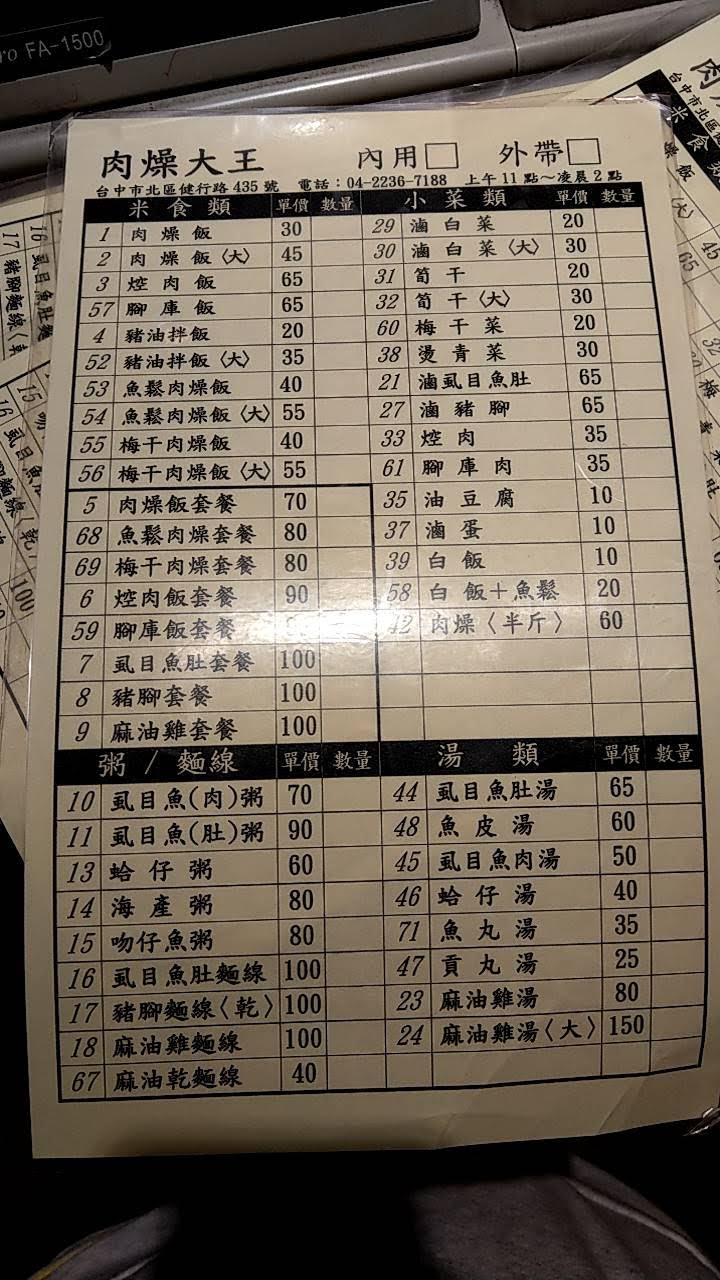 ro FA-1500
肉燥大王 內用 外帶
台中市北區健行路 435 號 電話：04-2236-7188 上午 11 點～凌晨 2 點
米食類 單價 數量
1 肉燥飯 30
2 肉燥飯〈大〉 45
3 焢肉飯 65
57 腳庫飯 65
4 豬油拌飯 20
52 豬油拌飯〈大〉 35
53 魚鬆肉燥飯 40
54 魚鬆肉燥飯〈大〉 55
55 梅干肉燥飯 40
56 梅干肉燥飯〈大〉 55
5 肉燥飯套餐 70
68 魚鬆肉燥套餐 80
69 梅干肉燥套餐 80
6 焢肉飯套餐 90
59 腳庫飯套餐
7 虱目魚肚套餐 100
8 豬腳套餐 100
9 麻油雞套餐 100
小菜類 單價 數量
29 滷白菜 20
30 滷白菜〈大〉 30
31 筍干 20
32 筍干〈大〉 30
60 梅干菜 20
38 燙青菜 30
21 滷虱目魚肚 65
27 滷豬腳 65
33 焢肉 35
61 腳庫肉 35
35 油豆腐 10
37 滷蛋 10
39 白飯 10
58 白飯＋魚鬆 20
42 肉燥〈半斤〉 60
粥 / 麵線 單價 數量
10 虱目魚(肉)粥 70
11 虱目魚(肚)粥 90
13 蛤仔粥 60
14 海產粥 80
15 吻仔魚粥 80
16 虱目魚肚麵線 100
17 豬腳麵線〈乾〉 100
18 麻油雞麵線 100
67 麻油乾麵線 40
湯類 單價 數量
44 虱目魚肚湯 65
48 魚皮湯 60
45 虱目魚肉湯 50
46 蛤仔湯 40
71 魚丸湯 35
47 貢丸湯 25
23 麻油雞湯 80
24 麻油雞湯〈大〉 150